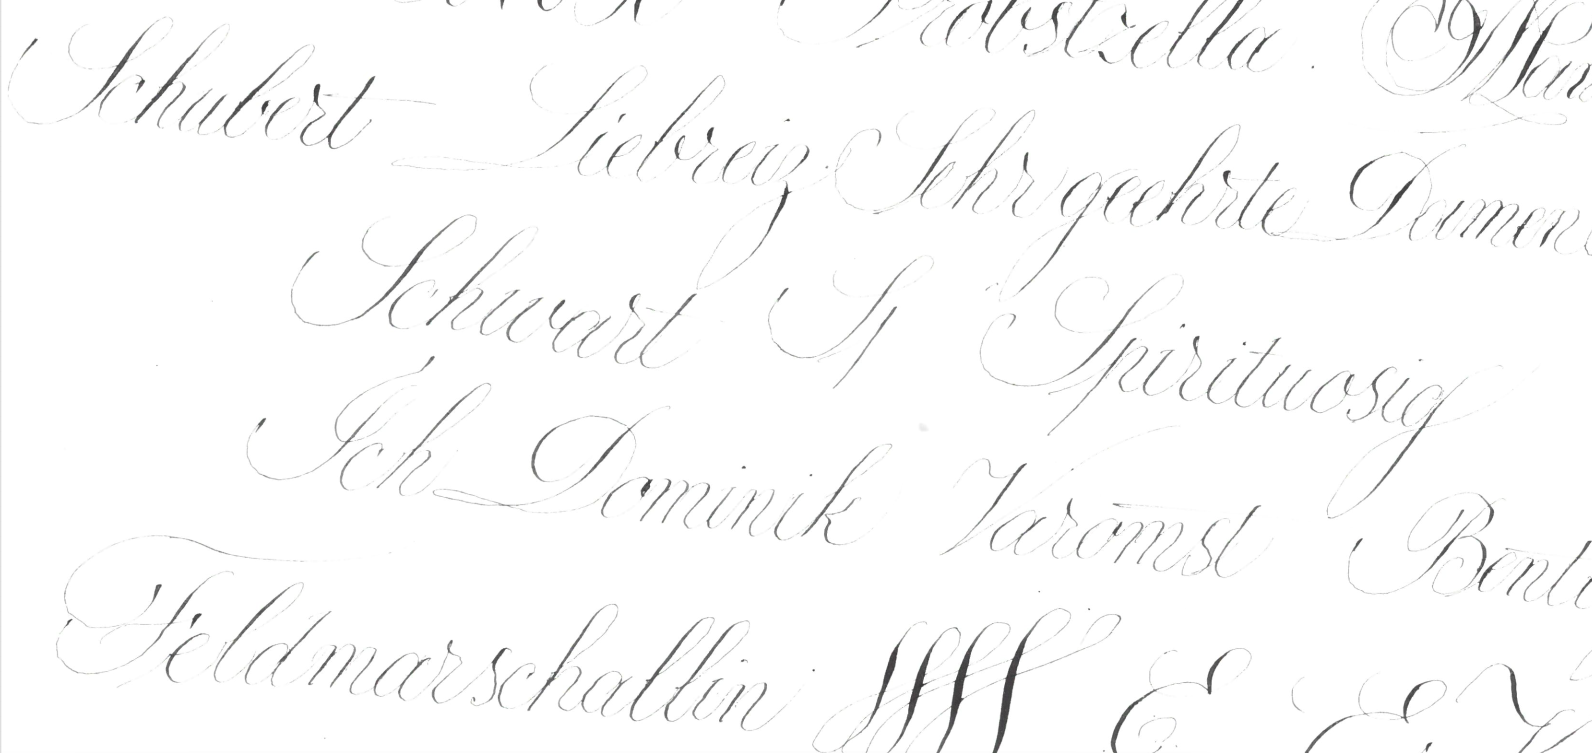 Probstzella.
Schubert Liebreiz Sehr geehrte Damen
Schwart S Spirituosig
Ich Dominik
Feldmarschallin E E